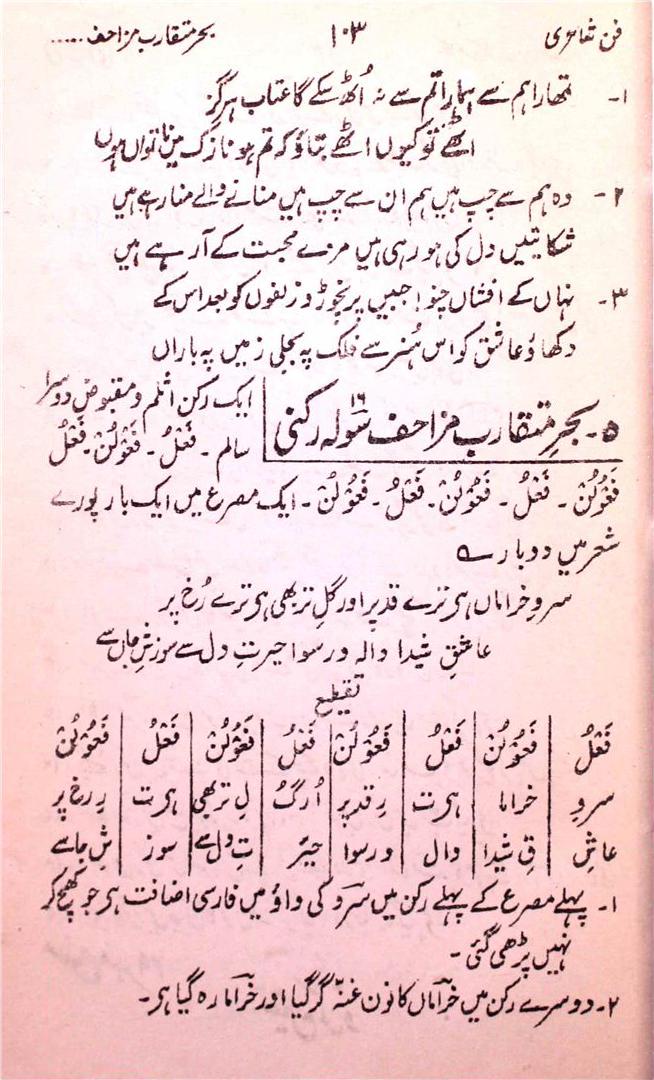 فن شاعری ۱۰۳ بحر متقارب مزاحف .....
۱۔ تمھارا ہم سے ہمارا تم سے نہ اُٹھ سکے گا عتاب ہرگز
اٹھے تو کیوں اٹھے بتاؤ کہ تم ہو نازک میں ناتواں ہوں
۲۔ وہ ہم سے چپ ہیں ہم ان سے چپ ہیں منانے والے منا رہے ہیں
شکایتیں دل کی ہو رہی ہیں مزے محبت کے آ رہے ہیں
۳۔ نہاں کے افشاں چنو! جبیں پر نچوڑو زلفوں کو بعد اس کے
دکھاؤ عاشق کو اس ہُنر سے فلک پہ بجلی زمیں پہ باراں
۵۔ بحرِ متقارب مزاحف سولہ ۱۶ رکنی
ایک رکن اثلم و مقبوض دوسرا
سالم ۔ فَعْلُ ۔ فَعُوْلُنْ ۔ فَعْلُ
فَعُوْلُنْ ۔ فَعْلُ ۔ فَعُوْلُنْ ۔ فَعْلُ ۔ فَعُوْلُنْ ۔ ایک مصرع میں ایک بار پورے
شعر میں دو بار ؎
سروِ خراماں ہی ترے قد پر اور گلِ تر بھی ہی ترے رُخ پر
عاشقِ شیدا والہ و رسوا حیرتِ دل سے سوزشِ جاں سے
تقطیع
فَعْلُ | فَعُوْلُنْ | فَعْلُ | فَعُوْلُنْ | فَعْلُ | فَعُوْلُنْ | فَعْلُ | فَعُوْلُنْ
سروِ | خراما | ہی ت | رِ قد پر | اُر گُ | لِ تر بھی | ہی ت | رِ رخ پر
عاشِ | قِ شیدا | وال | و رسوا | حیرَ | تِ دل سے | سوز | شِ جا سے
۱۔ پہلے مصرع کے پہلے رکن میں سَرو کی واؤ میں فارسی اضافت ہی جو کھینچ کر
نہیں پڑھی گئی ۔
۲۔ دوسرے رکن میں خراماں کا نون غنّہ گر گیا اور خراما رہ گیا ہی۔